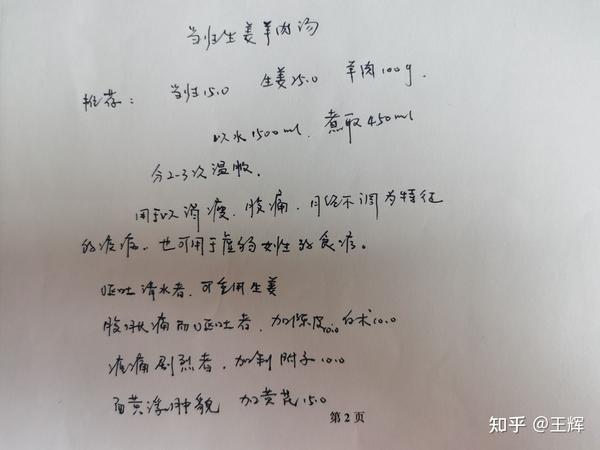 当归生姜羊肉汤
推荐：当归15.0 生姜25.0 羊肉100g.
以水1500ml. 煮取450ml
分2-3次温服.
用于以消瘦、腹痛、月经不调为特征
的疾病. 也可用于虚弱女性的食疗。
呕吐清水者，可重用生姜
腹冷痛而呕吐者，加陈皮10.0 白术10.0
疼痛剧烈者，加制附子10.0
面黄浮肿貌 加黄芪15.0
第2页
知乎 @王辉